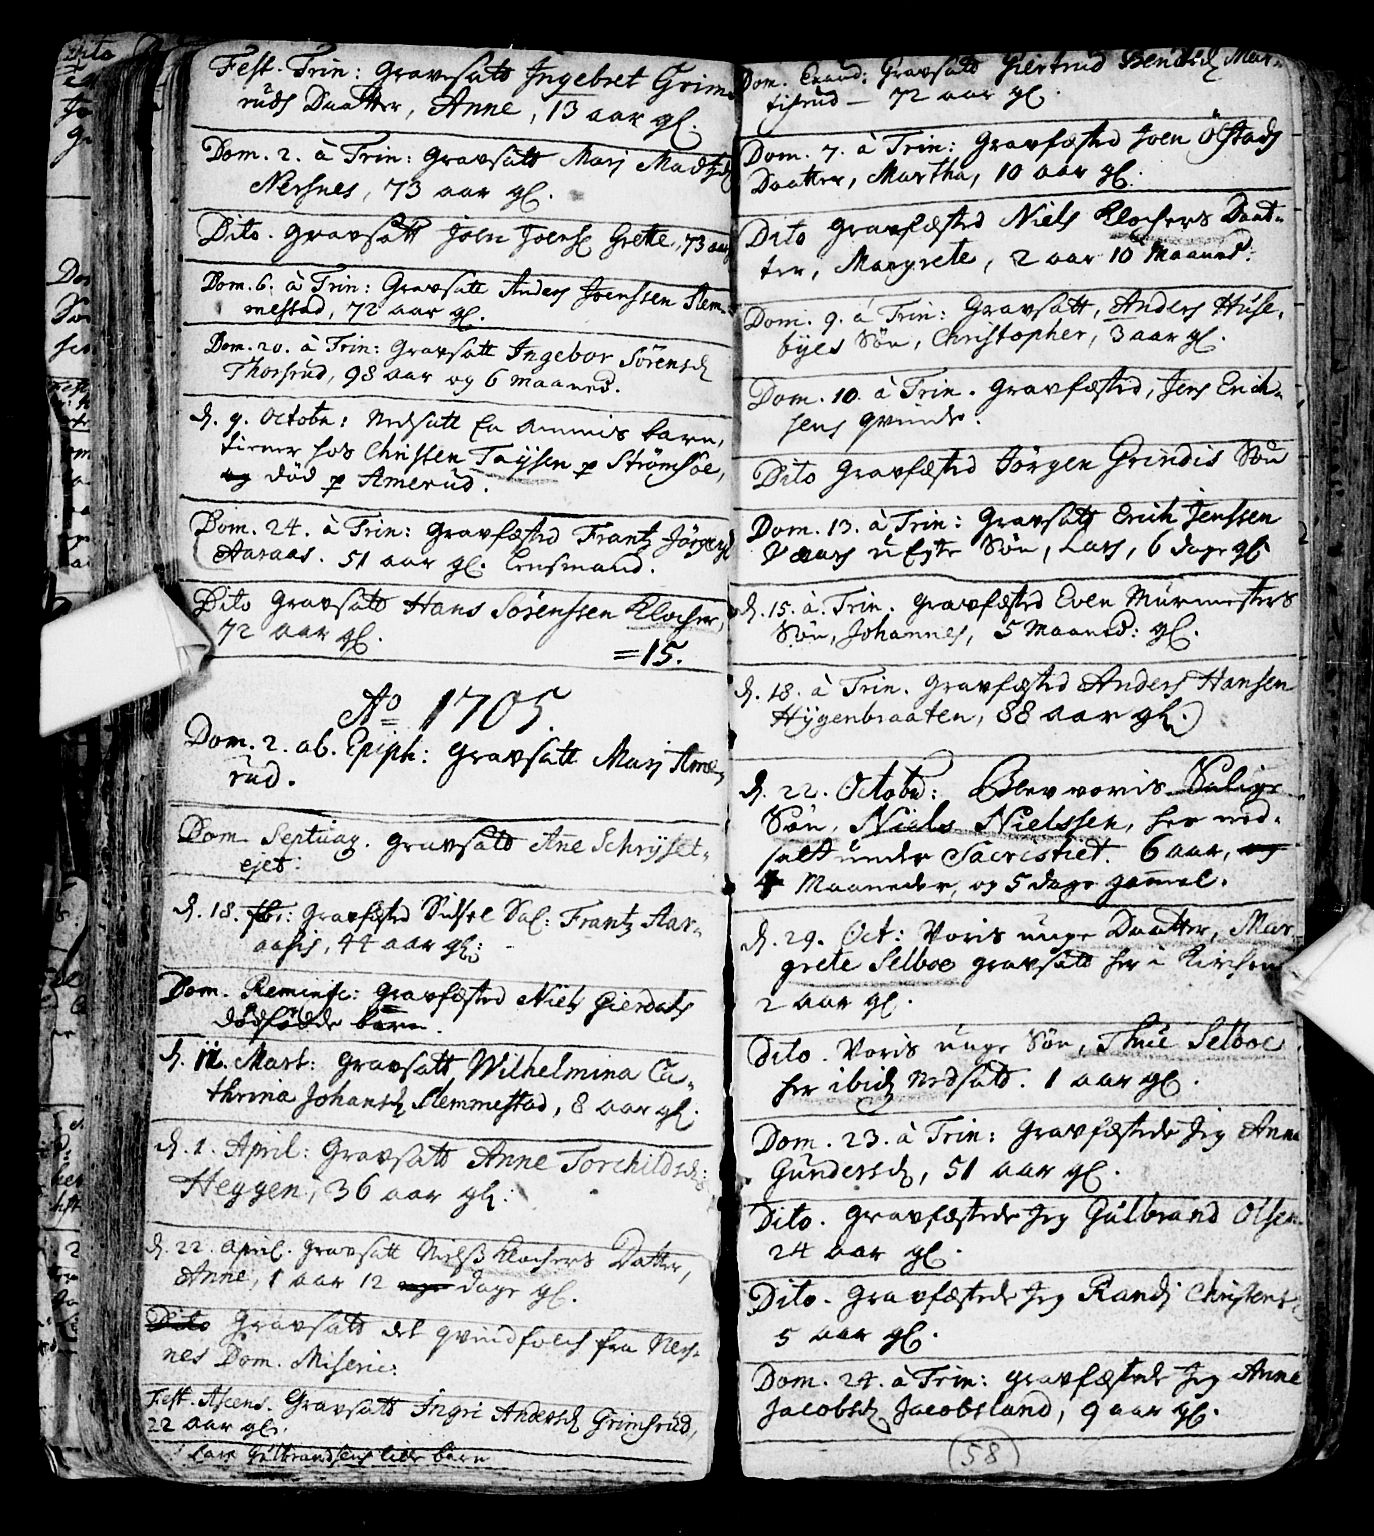 Fest. Trin: Gravsatt Ingebret Grims-
ruds Daatter, Anne, 13 aar gl.
Dom. 2. à Trin: Gravsatt Mari Madsd
Nersnes, 73 aar gl.
Dito. Gravsatt Joen Joens. Grette, 73 aar
Dom. 6. à Trin: Gravsatt Anders Joenssen Slem-
mestad, 72 aar gl.
Dom. 20. à Trin: Gravsatt Ingebor Sörensd
Thorsrud, 98 aar og 6 maaned.
d. 9. Octobr: Nedsatt En Ammis barn,
tiener hos Christen Taysen p Strömsöe,
og död p Amerud.
Dom. 24. à Trin: Gravfæsted Frantz Jörgens.
Aaraas. 51 aar gl. Lensmand.
Dito Gravsatt Hans Sörenssen Klocher,
72 aar gl.
=15.
Ao 1705.
Dom. 2. ab. Epiph: Gravsatt Mari Ame-
rud.
Dom Septuag. Gravsatt Ane Schryset-
ejet:
d. 18. fbr: Gravfæsted Sidsel Sal: Frantz Aar-
aasis, 44 aar gl:
Dom. Reminisc: Gravfæsted Niels Gierdals
dödfödde barn.
d. 11. Mart: Gravsatt Wilhelmina Ca-
thrina Johansd Slemmestad, 8 aar gl.
d. 1. April: Gravsatt Anne Torchildsd:
Heggen, 36 aar gl:
d. 22. April. Gravsatt Nielss Klochers Datter,
Anne, 1 aar 12 uger dage gl.
Dito Gravsatt det qvindfolch fra Ners-
nes Dom. Miseric:
Fest. Ascens. Gravsatt Ingri Andersd Grimsrud,
22 aar gl.
Lars Gulbrandsens lidle barn
Dom. Exaud: Gravsatt Giertrud Bendtsd Mar-
tisrud - 72 aar gl.
Dom. 7. à Trin: Gravfæsted Joen Öfstads
Daatter, Martha, 10 aar gl.
Dito Gravfæsted Niels Klochers Daat-
ter, Margrete, 2 aar 10 Maaned:
Dom. 9. à Trin: Gravsatt, Anders Huse-
byes Sön, Christopher, 3 aar gl.
Dom. 10. à Trin. Gravfæsted, Jens Erich-
sens qvinde.
Dito Gravfæsted Jörgen Grindis Sön
Dom. 13. à Trin: Gravsatt Erich Jenssen
Vaars uEgte Sön, Lars, 6 dage gl
d. 15. à. Trin. Gravfæsted Even Murmesters
Sön, Johannes, 5 Maaned: gl.
d. 18. à Trin. Gravfæsted Anders Hansen
Hygenbraaten, 88 aar gl.
d. 22. Octobr: Blev voris Salige
Sön, Niels Nielssen, her ned-
satt under Sacristiet. 6 aar, og
4 Maaneder, og 5 dage gamel.
d. 29. Oct: Voris unge Daatter, Mar-
grete Selboe gravsatt her i Kirchen
2 aar gl.
Dito. Voris unge Sön, Thue Selboe
her ibid nedsatt. 1 aar gl.
Dom. 23. à Trin: Gravfæstede Jeg Anna
Gundersd, 51 aar gl.
Dito. Gravfæstede Jeg Gulbrand Olsen
24 aar gl.
Dito. Gravfæstede Jeg Randi Christensd
5 aar gl.
Dom. 24. à Trin: Gravfæstede Jeg Anne
Jacobsd Jacobsland, 9 aar gl.
58